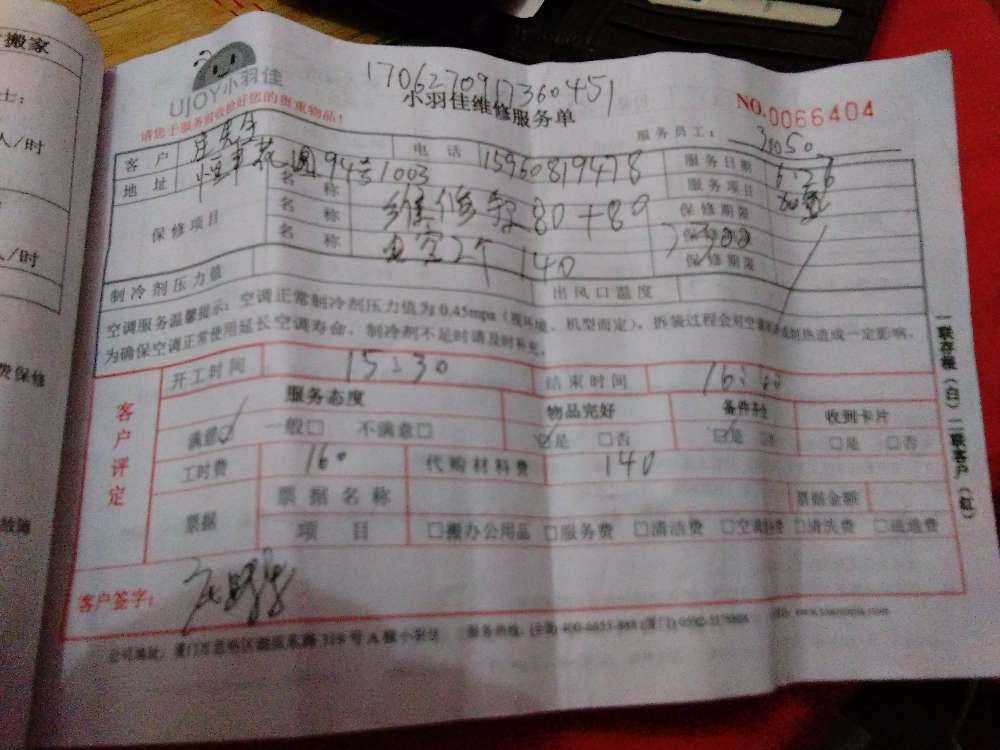 搬家
士：
人/时
人/时
费保修
故障
UJOY小羽佳
1706270917360451
小羽佳维修服务单
NO.0066404
请您于服务前收捡好您的贵重物品！
服务员工： 3050
客户 庄先生 电话 15960819478 服务日期 6.26
地址 恒丰花圆94号1003 服务项目
保修项目 名称 维修费80+80 保修期限
名称 2个 140 保修期限
名称 保修期限
制冷剂压力值 出风口温度
空调服务温馨提示：空调正常制冷剂压力值为0.45mpa（视环境、机型而定），拆装过程会对空调制冷或制热造成一定影响。
为确保空调正常使用延长空调寿命，制冷剂不足时请及时补充。
客户评定
开工时间 15:30 结束时间 16:40
服务态度 物品完好 备件齐全 收到卡片
满意☑ 一般□ 不满意□ ☑是 □否 ☑是 □否 □是 □否
工时费 160 代购材料费 140
票据 票据名称 票据金额
项目 □搬办公用品 □服务费 □清洁费 □空调费 □清洗费 □疏通费
客户签字：
公司地址：厦门市思明区 319号A幢小羽佳 服务热线：(全国) 400-6655-888 (厦门)
一联存根（白） 二联客户（红）